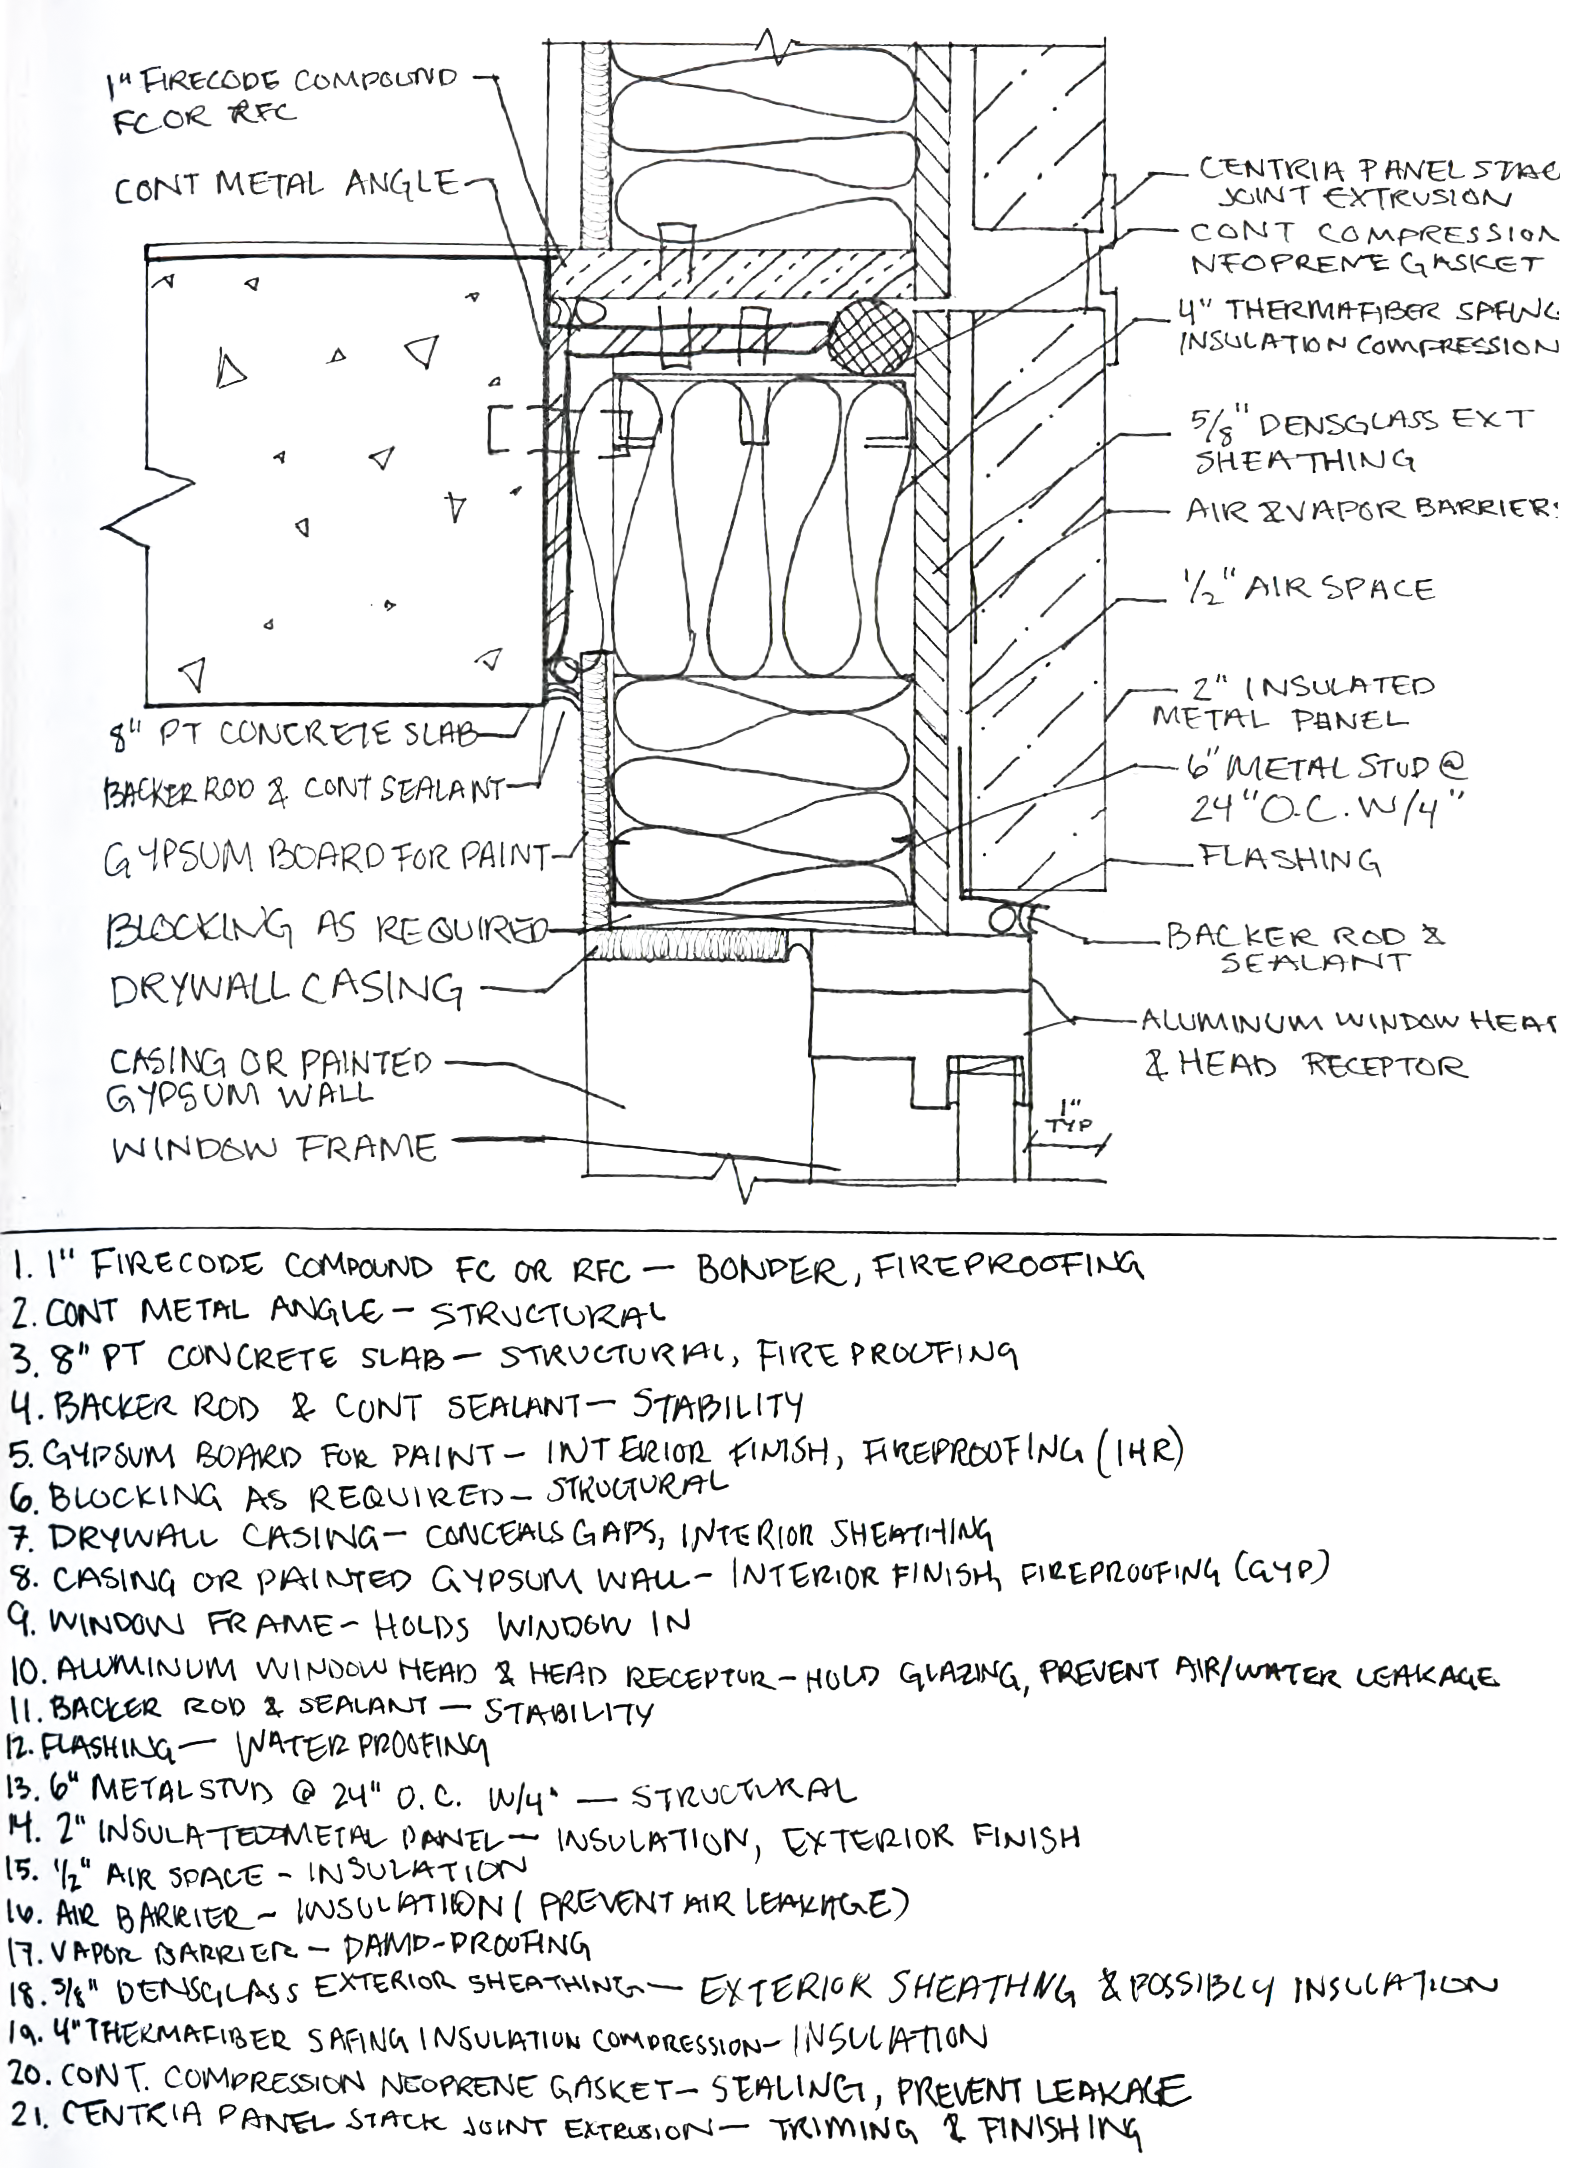 1" FIRECODE COMPOUND
FC OR RFC
CONT METAL ANGLE
8" PT CONCRETE SLAB
BACKER ROD & CONT SEALANT
GYPSUM BOARD FOR PAINT
BLOCKING AS REQUIRED
DRYWALL CASING
CASING OR PAINTED
GYPSUM WALL
WINDOW FRAME
CENTRIA PANEL STAC
JOINT EXTRUSION
CONT COMPRESSION
NEOPRENE GASKET
4" THERMAFIBER SAFING
INSULATION COMPRESSION
5/8" DENSGLASS EXT
SHEATHING
AIR & VAPOR BARRIERS
1/2" AIR SPACE
2" INSULATED
METAL PANEL
6" METAL STUD @
24" O.C. W/4"
FLASHING
BACKER ROD &
SEALANT
ALUMINUM WINDOW HEA
& HEAD RECEPTOR
1"
TYP
1. 1" FIRECODE COMPOUND FC OR RFC — BONDER, FIREPROOFING
2. CONT METAL ANGLE — STRUCTURAL
3. 8" PT CONCRETE SLAB — STRUCTURIAL, FIREPROOFING
4. BACKER ROD & CONT SEALANT — STABILITY
5. GYPSUM BOARD FOR PAINT — INTERIOR FINISH, FIREPROOFING (1HR)
6. BLOCKING AS REQUIRED — STRUCTURAL
7. DRYWALL CASING — CONCEALS GAPS, INTERIOR SHEATHING
8. CASING OR PAINTED GYPSUM WALL — INTERIOR FINISH, FIREPROOFING (GYP)
9. WINDOW FRAME — HOLDS WINDOW IN
10. ALUMINUM WINDOW HEAD & HEAD RECEPTOR — HOLD GLAZING, PREVENT AIR/WATER LEAKAGE
11. BACKER ROD & SEALANT — STABILITY
12. FLASHING — WATERPROOFING
13. 6" METAL STUD @ 24" O.C. W/4" — STRUCTURAL
14. 2" INSULATED METAL PANEL — INSULATION, EXTERIOR FINISH
15. 1/2" AIR SPACE - INSULATION
16. AIR BARRIER — INSULATION (PREVENT AIR LEAKAGE)
17. VAPOR BARRIER — DAMP-PROOFING
18. 5/8" DENSGLASS EXTERIOR SHEATHING — EXTERIOR SHEATHNG & POSSIBLY INSULATION
19. 4" THERMAFIBER SAFING INSULATION COMPRESSION — INSULATION
20. CONT. COMPRESSION NEOPRENE GASKET — SEALING, PREVENT LEAKAGE
21. CENTRIA PANEL STACK JOINT EXTRUSION — TRIMING & FINISHING